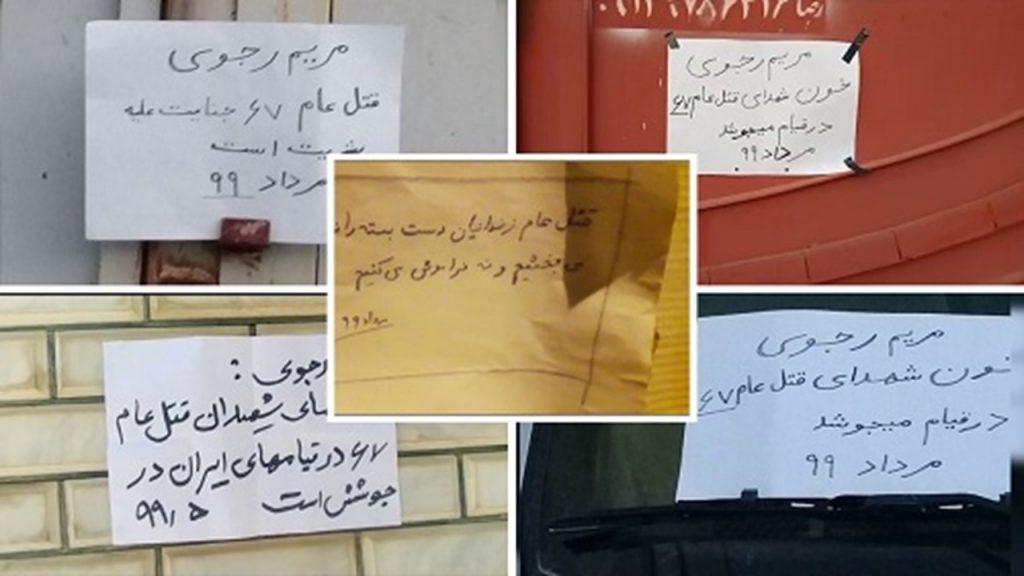 مریم رجوی
قتل عام ۶۷ جنایت علیه
بشریت است
مرداد ۹۹
رضا
مریم رجوی
خون شهدای قتل عام ۶۷
در قیام میجوشد
مرداد ۹۹
قتل عام زندانیان دست بسته را نه
می بخشیم و نه فراموش می کنیم
مرداد ۹۹
رجوی :
های شهیدان قتل عام
۶۷ در قیامهای ایران در
جوشش است ۹۹٫۵
مریم رجوی
خون شهدای قتل عام ۶۷
در قیام میجوشد
مرداد ۹۹